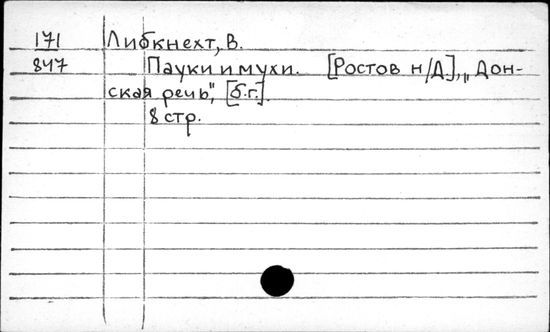 171 Либкнехт, В.
847 Пауки и мухи. [Ростов н/Д], „Дон-
ская речь", [б.г.].
8 стр.